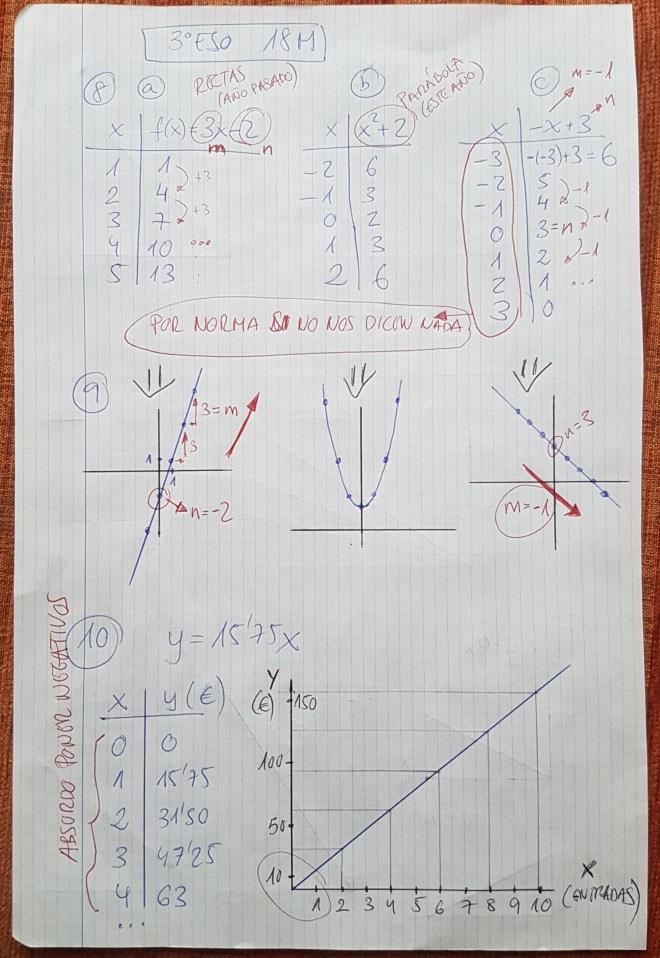 3ºESO 18M
8 a RECTAS (AÑO PASADO)
x f(x)=3x-2
m n
1 1
+3
2 4
+3
3 7
4 10 ...
5 13 :
b PARÁBOLA (ESTE AÑO)
x x²+2
-2 6
-1 3
0 2
1 3
2 6
c m=-1
n
x -x+3
-3 -(-3)+3=6
-2 5
-1
-1 4
0 3=n
-1
1 2
-1
2 1 ...
3 0
POR NORMA SI NO NOS DICEN NADA
9
3=m
3
1
1
n=-2
n=3
m=-1
10 y=15'75x
ABSURDO PONER NEGATIVOS
x y(€)
0 0
1 15'75
2 31'50
3 47'25
4 63
...
Y
(€)
150
100
50
10
1 2 3 4 5 6 7 8 9 10
X
(ENTRADAS)